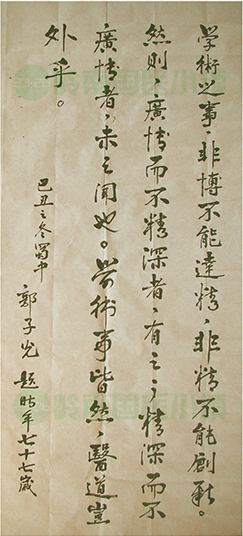 学術之事，非博不能達精，非精不能創新。
然則，廣博而不精深者，有之；精深而不
廣博者，未之聞也。学術事皆然，醫道豈
外乎。
己丑之冬蜀中
郭子光 題時年七十七歲